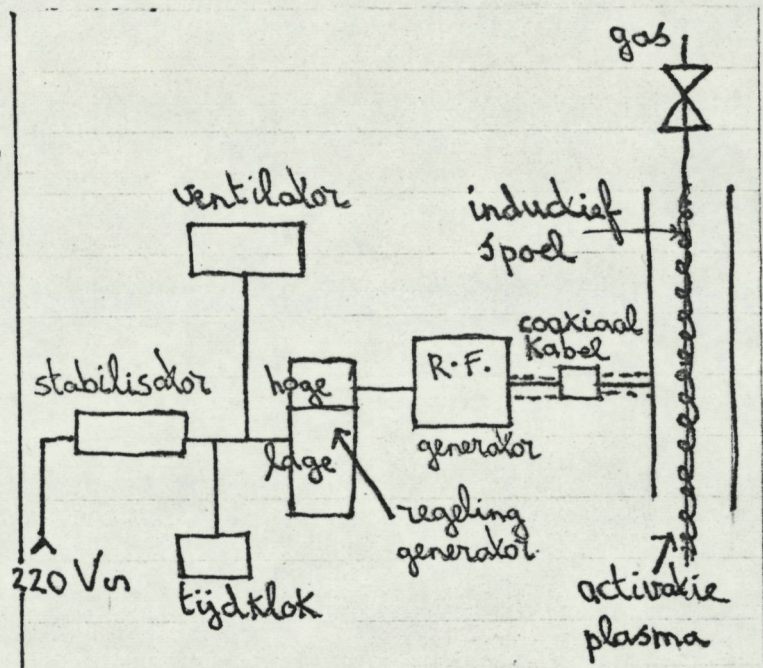 gas
ventilator
inductief
spoel
coaxiaal
kabel
stabilisator
hoge
R.F.
lage
generator
regeling
generator
220 V~
tijdklok
activatie
plasma